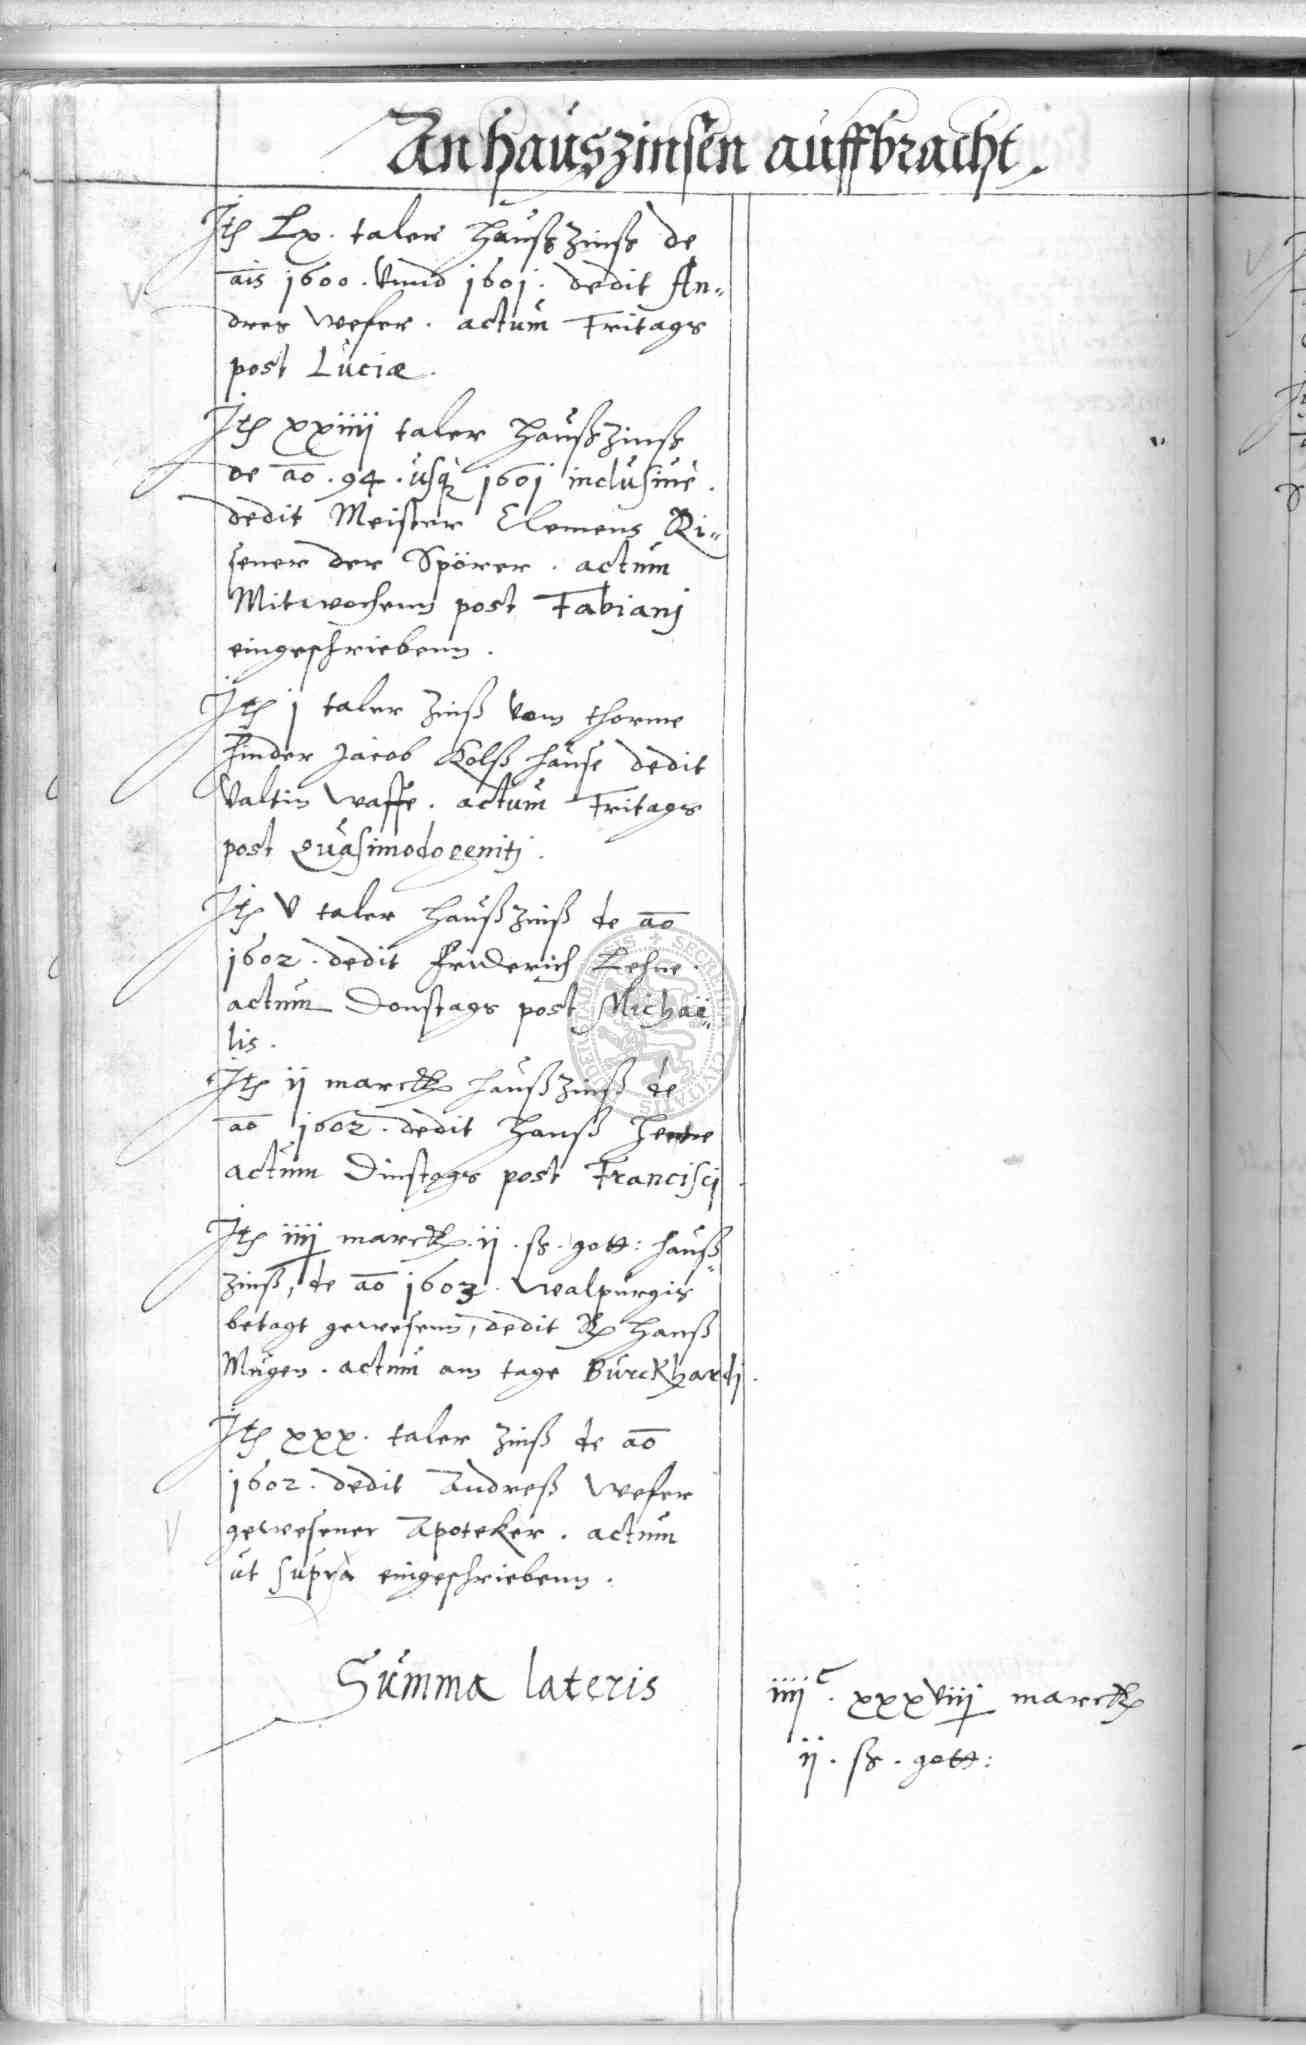 An hauszinsen auffbracht.
Jtem Lx. taler haußzinß de
ais 1600. Vnnd 1601. dedit An-
dres Wefer. actum Fritags
post Luciæ.
Jtem xxiiij taler haußzinß
de ao. 94. usq 1601 inclusiué.
dedit Meister Clemens Ri-
sener der Spörer. actum
Mitwochenn post Fabianj
eingeschriebenn.
Jtem j taler zinß vom thorme
hinder Jacob Kolß hause dedit
Valtin Waffe. actum Fritags
post Quasimodogenitj.
Jtem V taler haußzinß de ao
1602. dedit Friderich Lehne.
actum Donstags post Michaë-
lis.
Jtem ij marck haußzinß de
ao 1602. dedit Hanß
actum Dinstags post Franciscj
Jtem iiij marck. ij. ß. gott: hauß-
zinß, de ao 1603. Walpurgis
betagt gewesenn, dedit Hanß
actum am tage Burckhardj.
Jtem xxx. taler zinß de ao
1602. dedit Andreß Wefer
gewesener Apoteker. actum
ut supra eingeschriebenn.
Summa lateris
iiij C. xxxviij marck
ij. ß. gott: